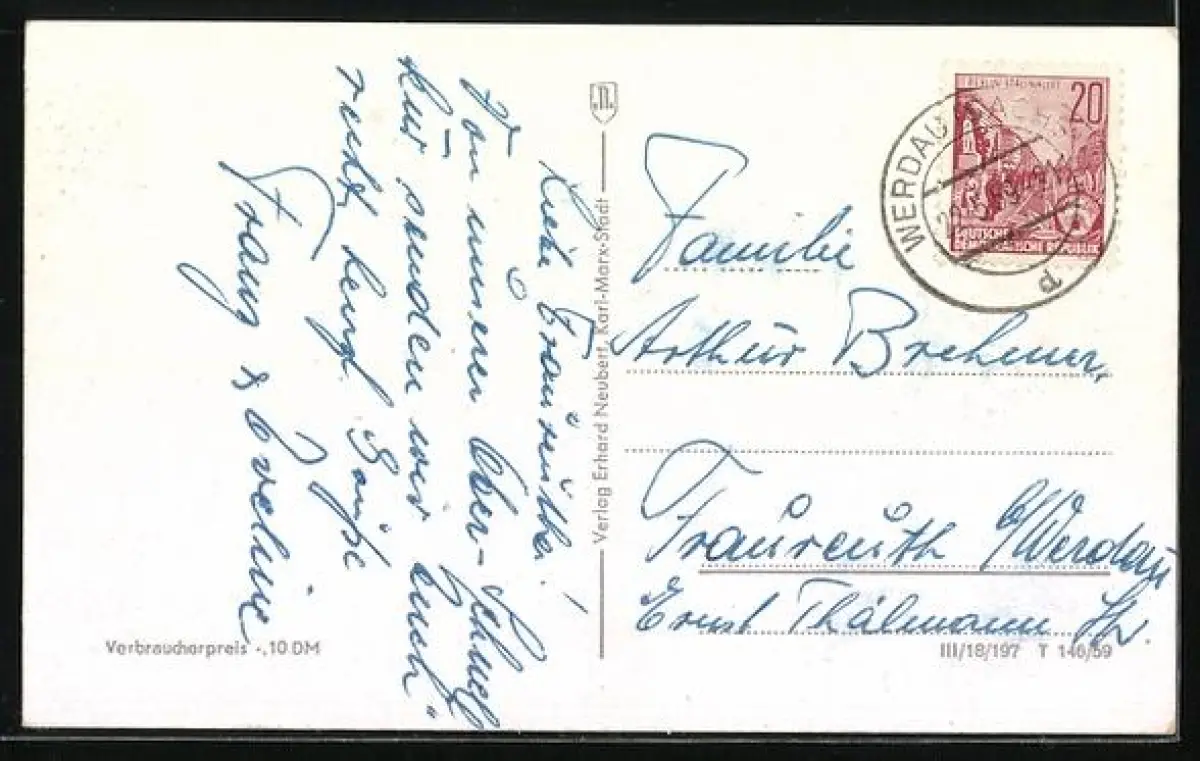 Liebe Fraureuther!
Von unserer Ober-Schnell
kur senden wir Euch
recht herzl. Grüße
Franz & Eveline
Verbraucherpreis -,10 DM
Verlag Erhard Neubert, Karl-Marx-Stadt
BERLIN STALINALLEE
20
DEUTSCHE
DEMOKRATISCHE REPUBLIK
WERDAU
d
Familie
Arthur Brehmer.
Fraureuth b/Werdau
Ernst Thälmann Str.
III/18/197 T 146/59